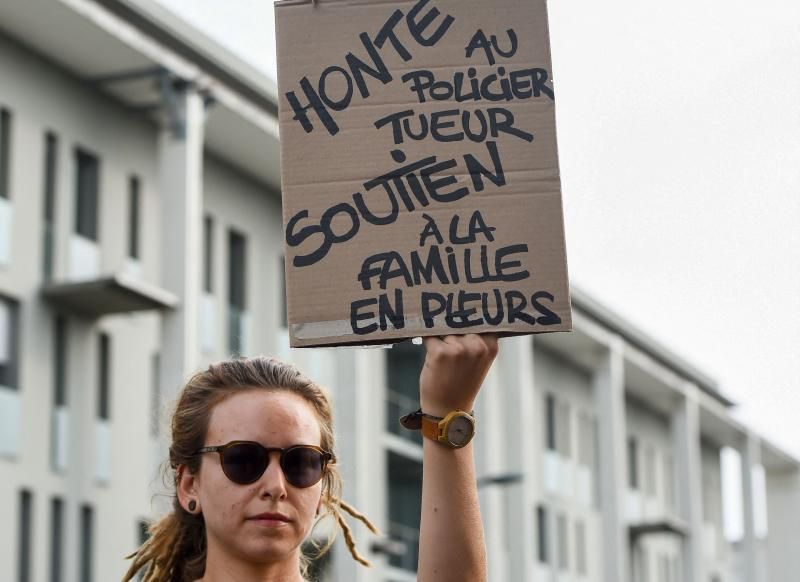 HONTE AU
POLICIER
TUEUR
SOUTIEN
À LA
FAMILLE
EN PLEURS